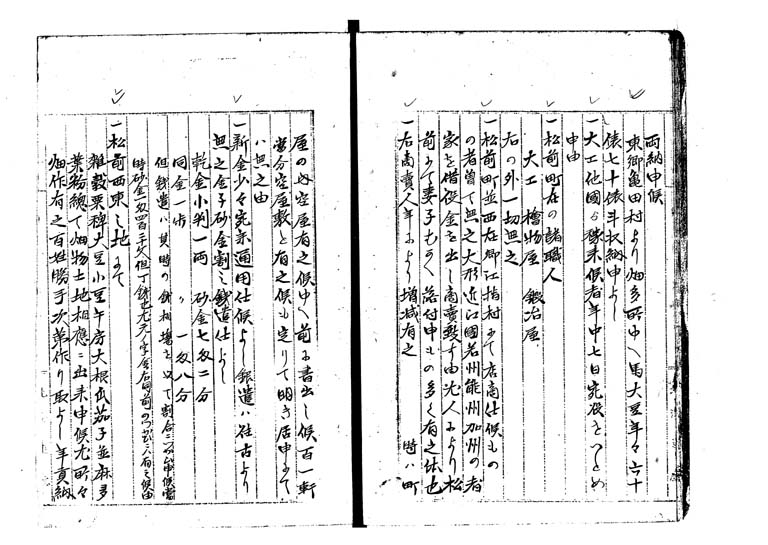 両納申候
東郷亀田村より畑多所中ヘ馬大豆年々六十
俵七十俵斗収納申よし
一大工他國ゟ稼来候者年中七日宛役をつとめ
申由
一松前町在の諸職人
大工　檜物屋　鍛冶屋
右の外一切無之
一松前町並西在郷江指村にて店商仕候もの
の者曽て無之大形近江國若州能州加州の者
家を借役金を出し商賣致す由尤人により松
前にて妻子もちく落付申もの多く有之体也
一右商賣人年により増減有之　時ハ町
屋の内空屋有之候中ヘ前に書出し候百一軒
當分空屋敷と有之候も定りて明き居申にて
ハ無之由
一新金少々宛京通用仕候よし銀遣ハ往古より
無之金子砂金割之銭遣仕よし
乾金小判一両　砂金七匁二分
同金一歩　〃　一匁八分
但銭遣ハ其時の銭相場を以て割合二而申候當
時砂金一匁四百二十文但丁銭也尤元ノ字金右同前のつもり二人有之候由
一松前西東之地にて
雑穀粟稗大豆小豆午房大根瓜茄子並麻多
葉粉総て畑物土地相應ニ出来申候尤所々
畑作有之百姓勝手次第作り取よし年貢納